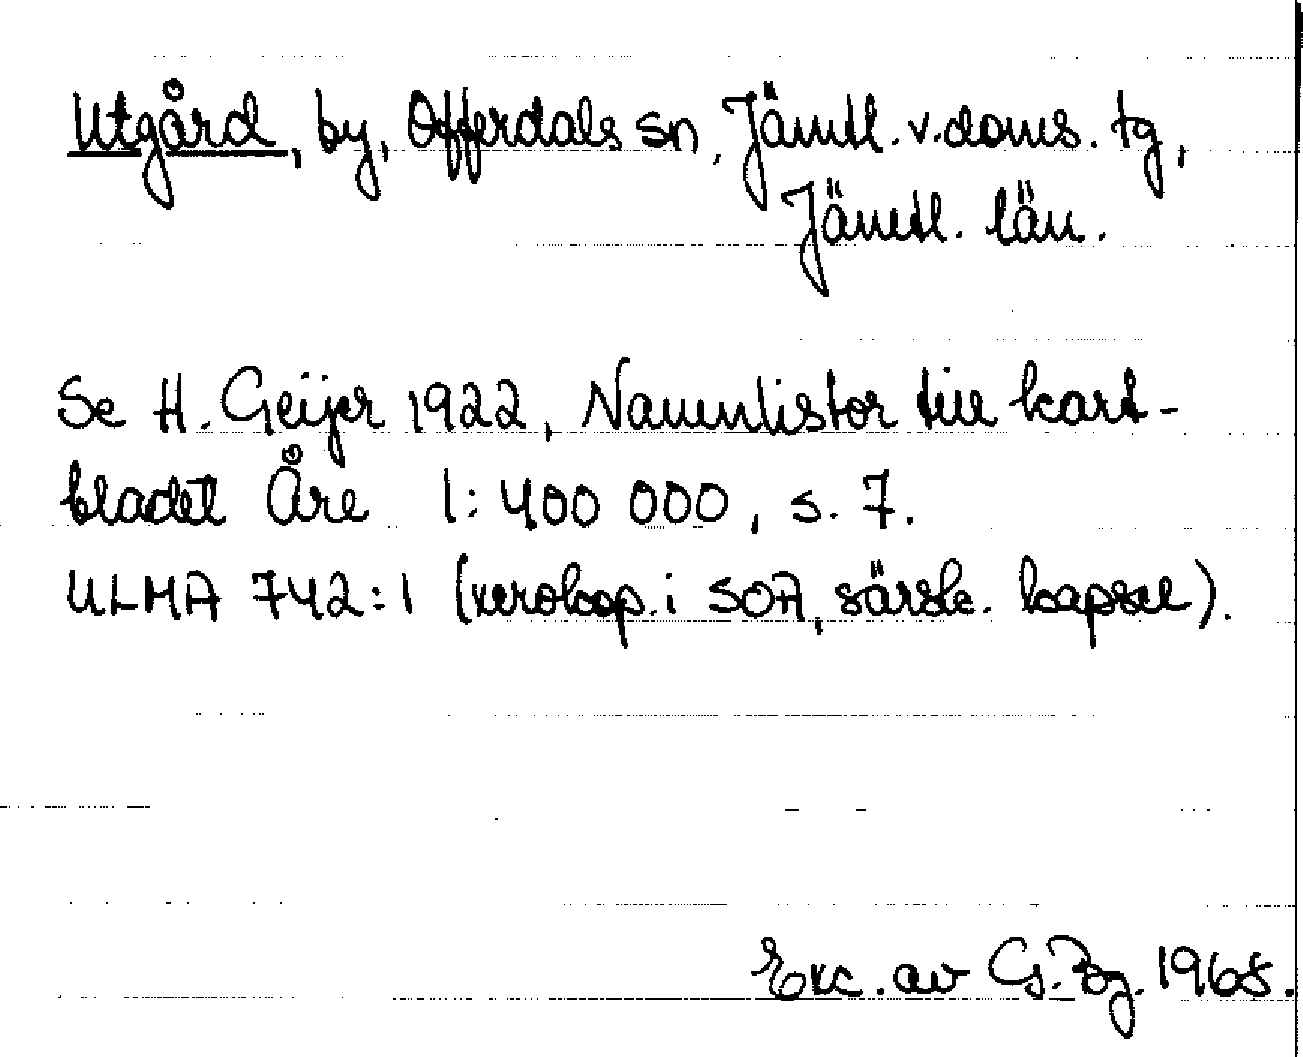 Utgård, by, Offerdals sn, Jämtl. v. doms. tg,
Jämtl. län.
Se H. Geijer 1922, Namnlistor till kart-
bladet Åre 1:400 000, s. 7.
ULMA 742:1 (xerokop. i SOA, särsk. kapsel).
Exc. av G. Bg. 1968.